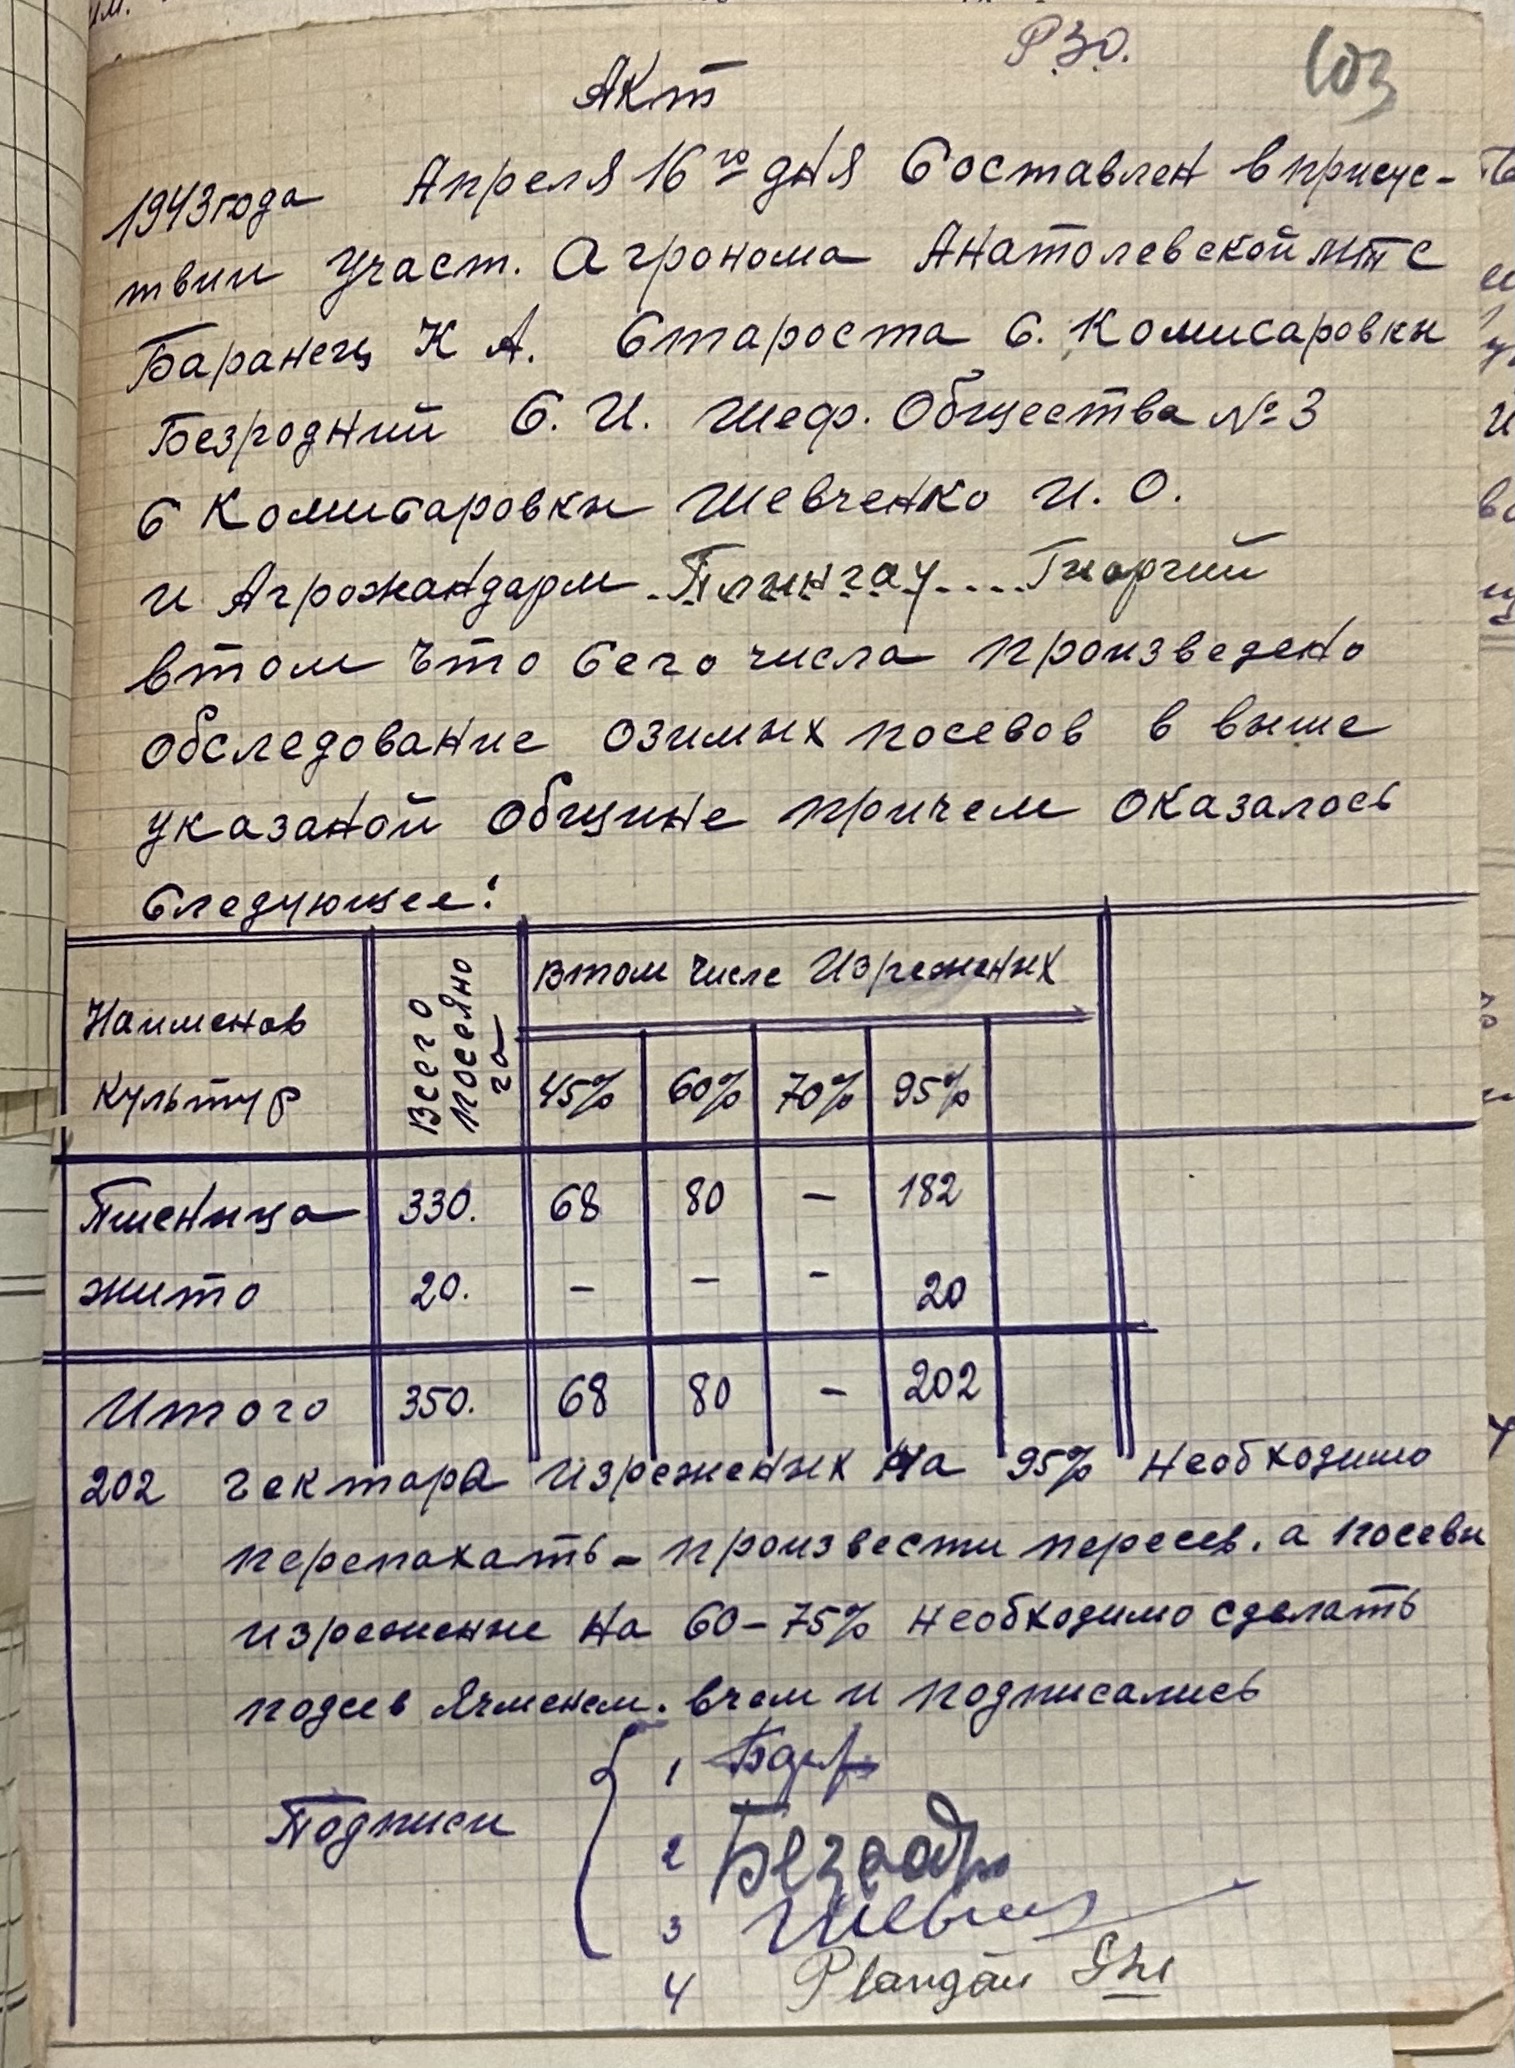 РЗО.
103
Акт
1943 года Апреля 16го дня Составлен в присус-
твии Участ. Агронома Анатолевской мтс
Баранец К А. Староста С. Комисаровки
Безродний С. И. Шеф. Общества № 3
С Комисаровки Шевченко И. О.
и Агрожандарм Плынгау Гиоргий
втом что Сего числа произведено
обследование озимых посевов в выше
указаной общине причем оказалось
Следующее:
Наименов культур
Всего посеяно га
втом числе Изрежених
45% 60% 70% 95%
Пшеница 330. 68 80 – 182
жито 20. – – – 20
Итого 350. 68 80 – 202
202 гектара изреженых на 95% необходимо
перепахать – произвести пересев. а посевы
изрежение на 60–75% необходимо сделать
подсев Ячменем. вчем и подписались
Подписи
1
2 Безродн
3 Шевчен
4 Plangău Ghe